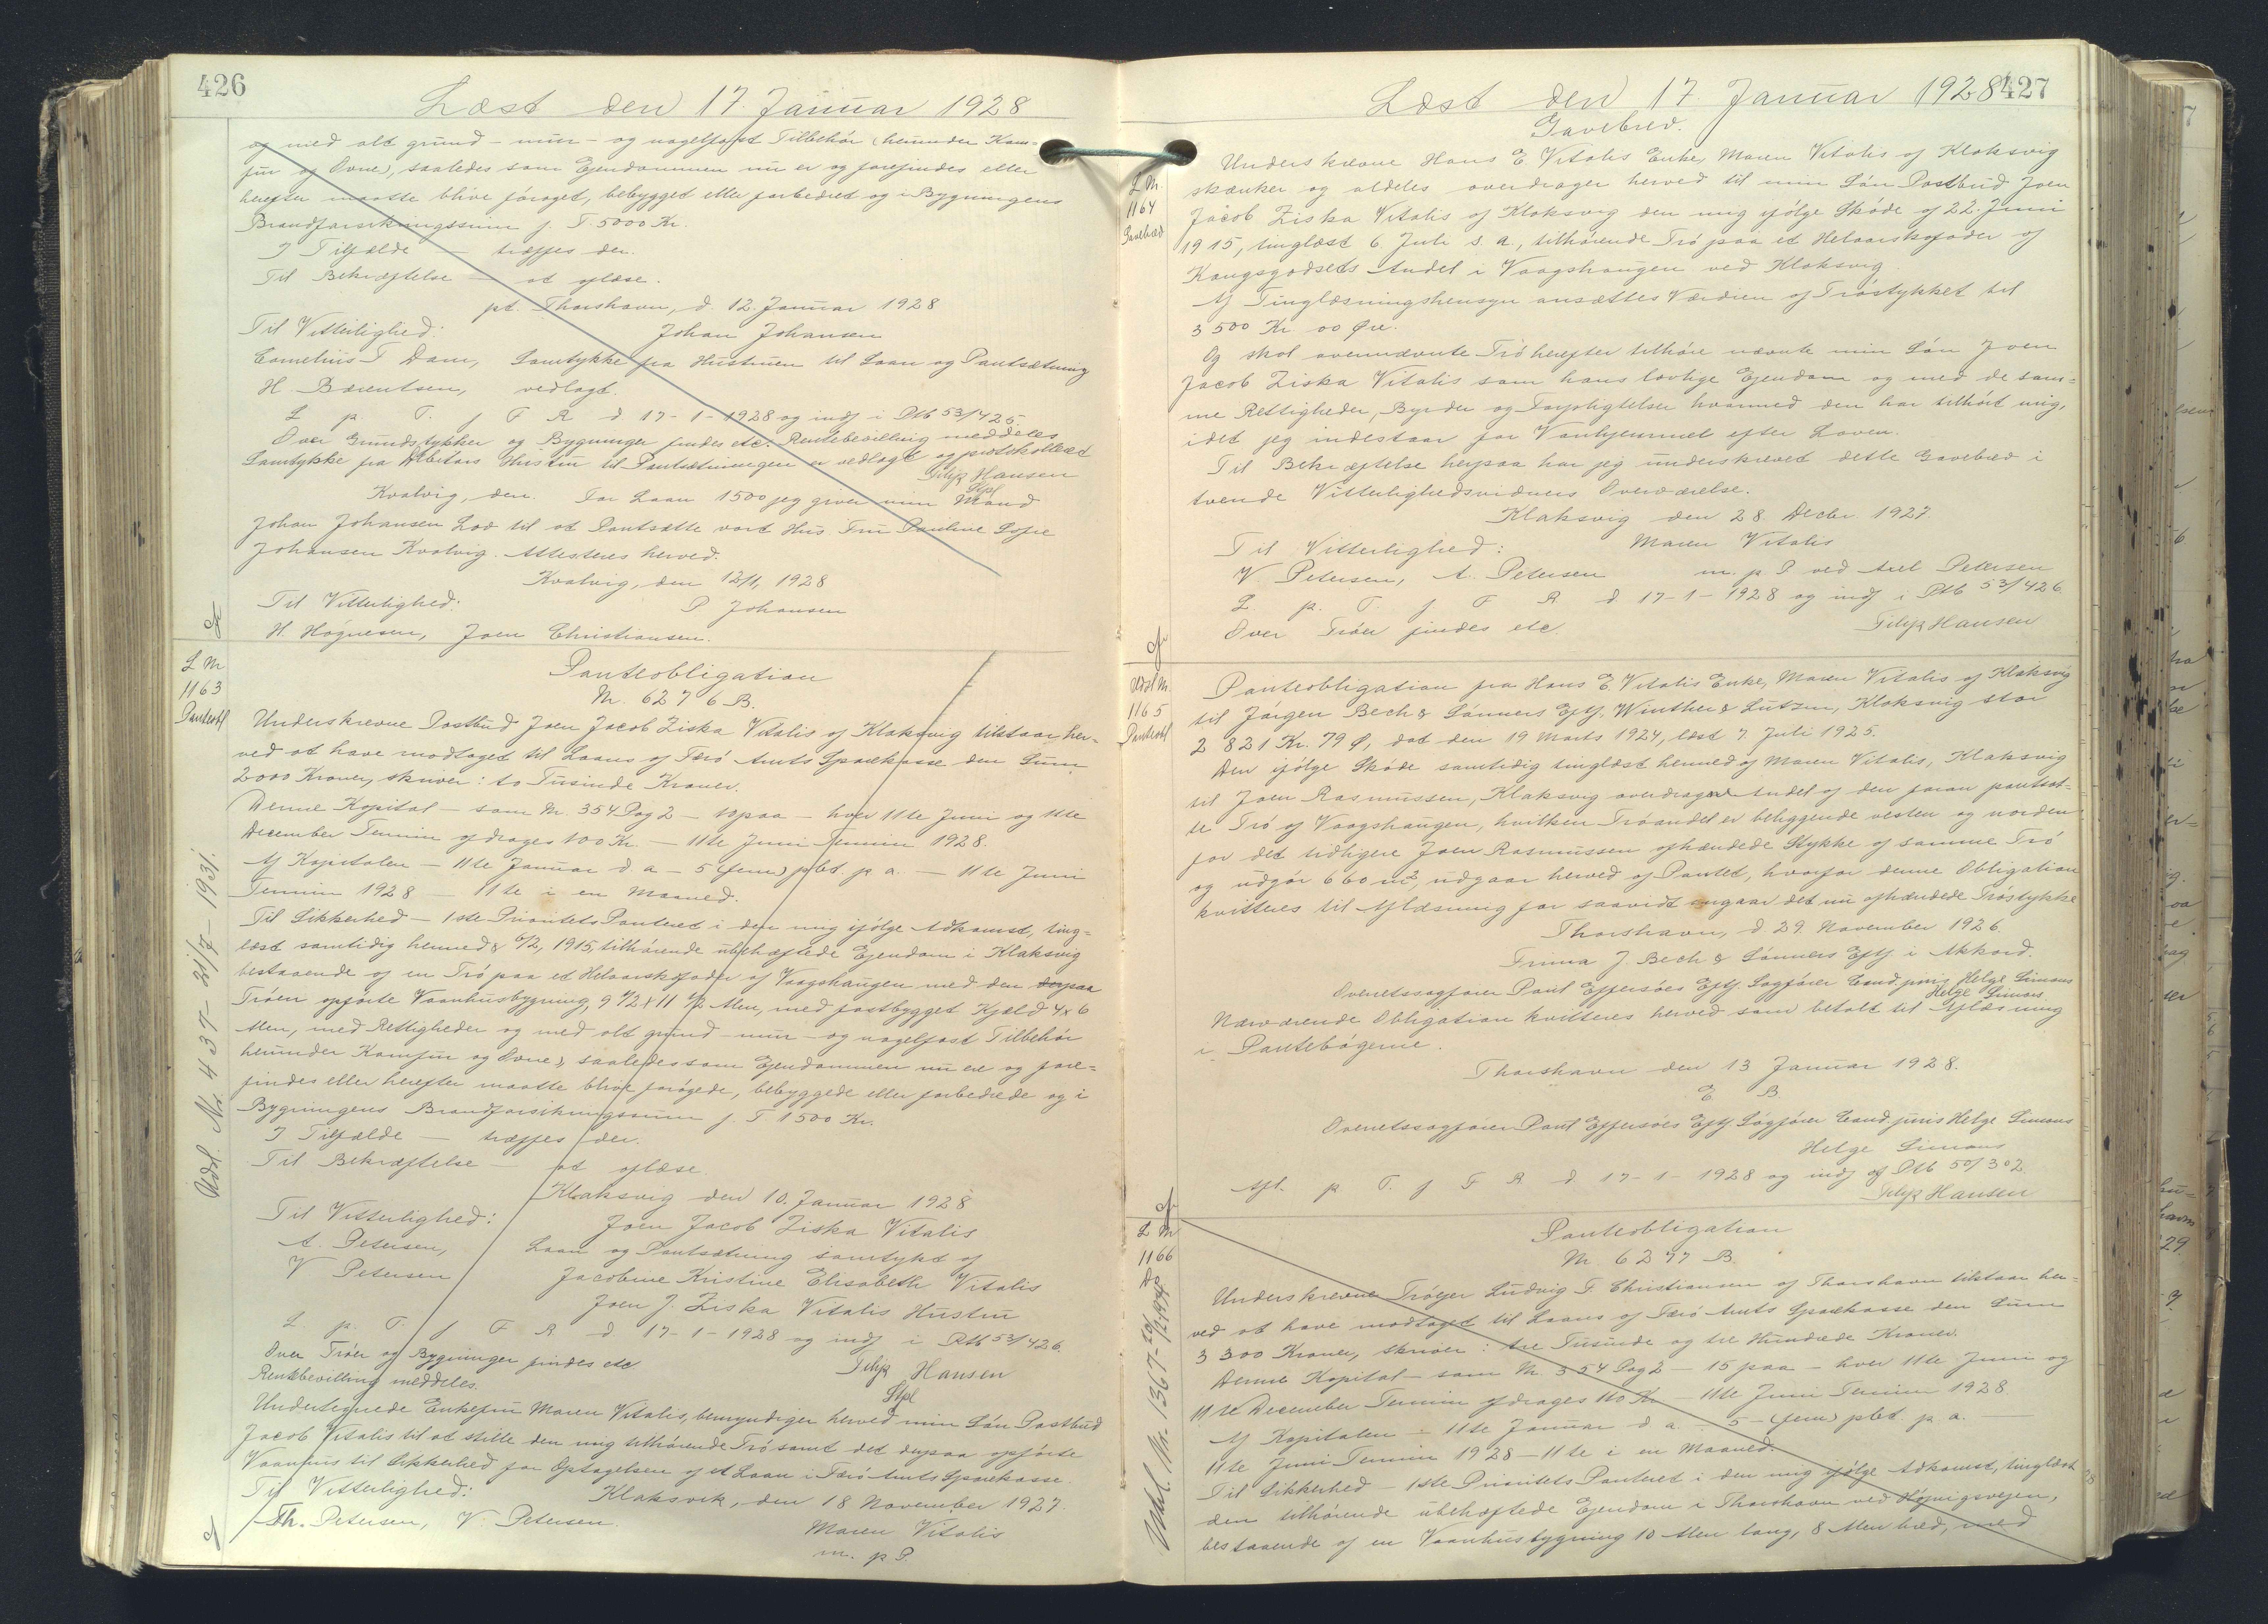 426
Læst den 17. Januar 1928
og med alt grund- mur- og nagelfast Tilbehör (herunder Kom-
fur og Ovne), saaledes som Ejendommen nu er og forefindes eller
herefter maatte blive forøget, bebygget eller forbedret og i Bygningens
Brandforsikringssum f. T. 5000 Kr.
I Tilfælde — træffes der.
Til Bekræftelse — at aflæse.
pt. Thorshavn, d. 12. Januar 1928
Til Vitterlighed: Johan Johansen
Cornelius T Dam, Samtykke fra Hustruen til Laan og Pantsætning
H. Bærentsen, vedlagt.
L p. T. f F R d 17-1-1928 og indf i Ptb 53/425.
Over Grundstykker og Bygninger findes etc. Rentebevilling meddeles
Samtykke fra Debitors Hustru til Pantsætningen er vedlagt og protokolleret
Filip Hansen
Stpl
Kvalvig, den. For Laan 1500 jeg giver min Mand
Johan Johansen Lov til at Pantsætte vort Hus. Fru Pauline Sofie
Johansen Kvalvig. Attesteres herved.
Kvalvig, den 12/1, 1928
Til Vitterlighed: P Johansen
H. Högnesen, Joen Christiansen.
L Nr
1163
Panteobl
Panteobligation
Nr. 6276 B.
Underskrevne Postbud Joen Jacob Ziska Vitalis af Klaksvig tilstaar her-
ved at have modtaget til Laans af Færö Amts Sparekasse den Sum
2000 Kroner, skriver: to Tusinde Kroner.
Denne Kapital — som Nr. 354 Pag 2 — 10 paa — hver 11te Juni og 11te
December Termin afdrages 100 Kr — 11te Juni Termin 1928.
Af Kapitalen — 11te Januar d a — 5 (fem) pCt. p a. — 11te Juni
Termin 1928 — 11te i en Maaned.
Til Sikkerhed — 1ste Prioritets Panteret i den mig ifölge Adkomst, ting-
læst samtidig hermed & 6/2, 1915, tilhörende ubehæftede Ejendom i Klaksvig
bestaaende af en Trö paa et Helaarskofoder af Vaagshaugen med den derpaa
Tröen opförte Vaanhusbygning, 9 1/2 x 11 1/2 Alen, med fastbygget Kjæld 4x6
Alen, med Rettigheder og med alt grund- mur- og nagelfast Tilbehör
herunder Komfur og Ovne), saaledes som Ejendommen nu ere og fore-
findes eller herefter maatte blive forögede, bebyggede eller forbedrede og i
Bygningens Brandforsikringssum f. T 1500 Kr.
I Tilfælde — træffes der.
Til Bekræftelse — at aflæse.
Klaksvig den 10. Januar 1928
Til Vitterlighed: Joen Jacob Ziska Vitalis
A. Petersen, Laan og Pantsætning samtykt af
V Petersen Jacobine Kristine Elisabeth Vitalis
Joen J. Ziska Vitalis Hustru
L. p. T. f F R d 17-1-1928 og indf i Ptb 53/426.
Over Tröer og Bygninger findes etc
Rentebevilling meddeles. Filip Hansen
Stpl
Undertegnede Enkefru Maren Vitalis, bemyndiger herved min Sön Postbud
Jacob Vitalis til at stille den mig tilhörende Trö samt det derpaa opförte
Vaanhus til Sikkerhed for Optagelsen af et Laan i Færö Amts Sparekasse.
Til Vitterlighed: Klaksvik, den 18 November 1927.
Th. Petersen, V. Petersen. Maren Vitalis
m. p P.
Udsl. Nr. 437 - 31/7 - 1931.
427
Læst den 17 Januar 1928
L Nr.
1164
Gavebrev
Gavebrev.
Underskrevne Hans E Vitalis Enke, Maren Vitalis af Klaksvig
skænker og aldeles overdrager herved til min Sön Postbud Joen
Jacob Ziska Vitalis af Klaksvig den mig ifölge Sköde af 22. Juni
1915, tinglæst 6. Juli s. a., tilhörende Trö paa et Helaarskofoder af
Kongsgodsets Andel i Vaagshaugen ved Klaksvig
Af Tinglæsningshensyn ansættes Værdien af Tröstykket til
3500 Kr. 00 Øre.
Og skal ovennævnte Trö herefter tilhöre nævnte min Sön Joen
Jacob Ziska Vitalis som hans lovlige Ejendom og med de sam-
me Rettigheder, Byrder og Forpligtelser hvormed den har tilhört mig,
idet jeg indestaar for Vanhjemmel efter Loven.
Til Bekræftelse herpaa har jeg underskrevet dette Gavebrev i
tvende Vitterlighedsvidners Overværelse.
Klaksvig den 28 Decbr. 1927.
Til Vitterlighed: Maren Vitalis
V Petersen, A. Petersen m. p P ved Axel Petersen
L p. T. f. F R d 17-1-1928 og indf i Ptb 53/426.
Over Tröer findes etc Filip Hansen
Udsl Nr.
1165
Panteobl
Panteobligation fra Hans E. Vitalis Enke, Maren Vitalis af Klaksvig
til Jörgen Bech & Sönners Eftf. Winther & Lützen, Klaksvig stor
2821 Kr. 79 Ø, dat den 19 Marts 1924, læst 7. Juli 1925.
Den ifölge Sköde samtidig tinglæst hermed af Maren Vitalis, Klaksvig
til Joen Rasmussen, Klaksvig overdragne Andel af den foran pantsat-
te Trö af Vaagshaugen, hvilken Tröandel er beliggende vesten og norden
for det tidligere Joen Rasmussen afhændede Stykke af samme Trö
og udgör 660 m², udgaar herved af Pantet, hvorfor denne Obligation
kvitteres til Aflæsning for saavidt angaar det nu afhændede Tröstykke
Thorshavn, d. 29. November 1926.
Firma J. Bech & Sönners Eftf. i Akkord.
Overretssagförer Poul Effersöes Eftf. Sagförer Cand. juris Helge Simons
Helge Simons
Nærværende Obligation kvitteres herved som betalt til Aflæsning
i Pantebögerne.
Thorshavn den 13 Januar 1928.
E B.
Overretssagförer Poul Effersöes Eftf. Sagförer Cand juris Helge Simons
Helge Simons
Afl. p T. f F R d 17-1-1928 og indf af Ptb 50/302.
Filip Hansen
L Nr
1166
Do
Panteobligation
Nr. 6277 B.
Underskrevne Tröejer Ludvig T. Christiansen af Thorshavn tilstaar her-
ved at have modtaget til Laans af Færö Amts Sparekasse den Sum
3300 Kroner, skriver: tre Tusinde og tre Hundrede Kroner.
Denne Kapital — som Nr. 354 Pag 2 — 15 paa — hver 11te Juni og
11te December Termin afdrages 110 Kr — 11te Juni Termin 1928
Af Kapitalen — 11te Januar d a. — 5 — (fem) pCt. p a. —
11te Juni Termin 1928 — 11te i en Maaned.
Til Sikkerhed — 1ste Prioritets Panteret i den mig ifölge Adkomst, tinglæst
den tilhörende ubehæftede Ejendom i Thorshavn ved Höjvigsvejen,
bestaaende af en Vaanhusbygning 10 Alen lang, 8 Alen bred, med